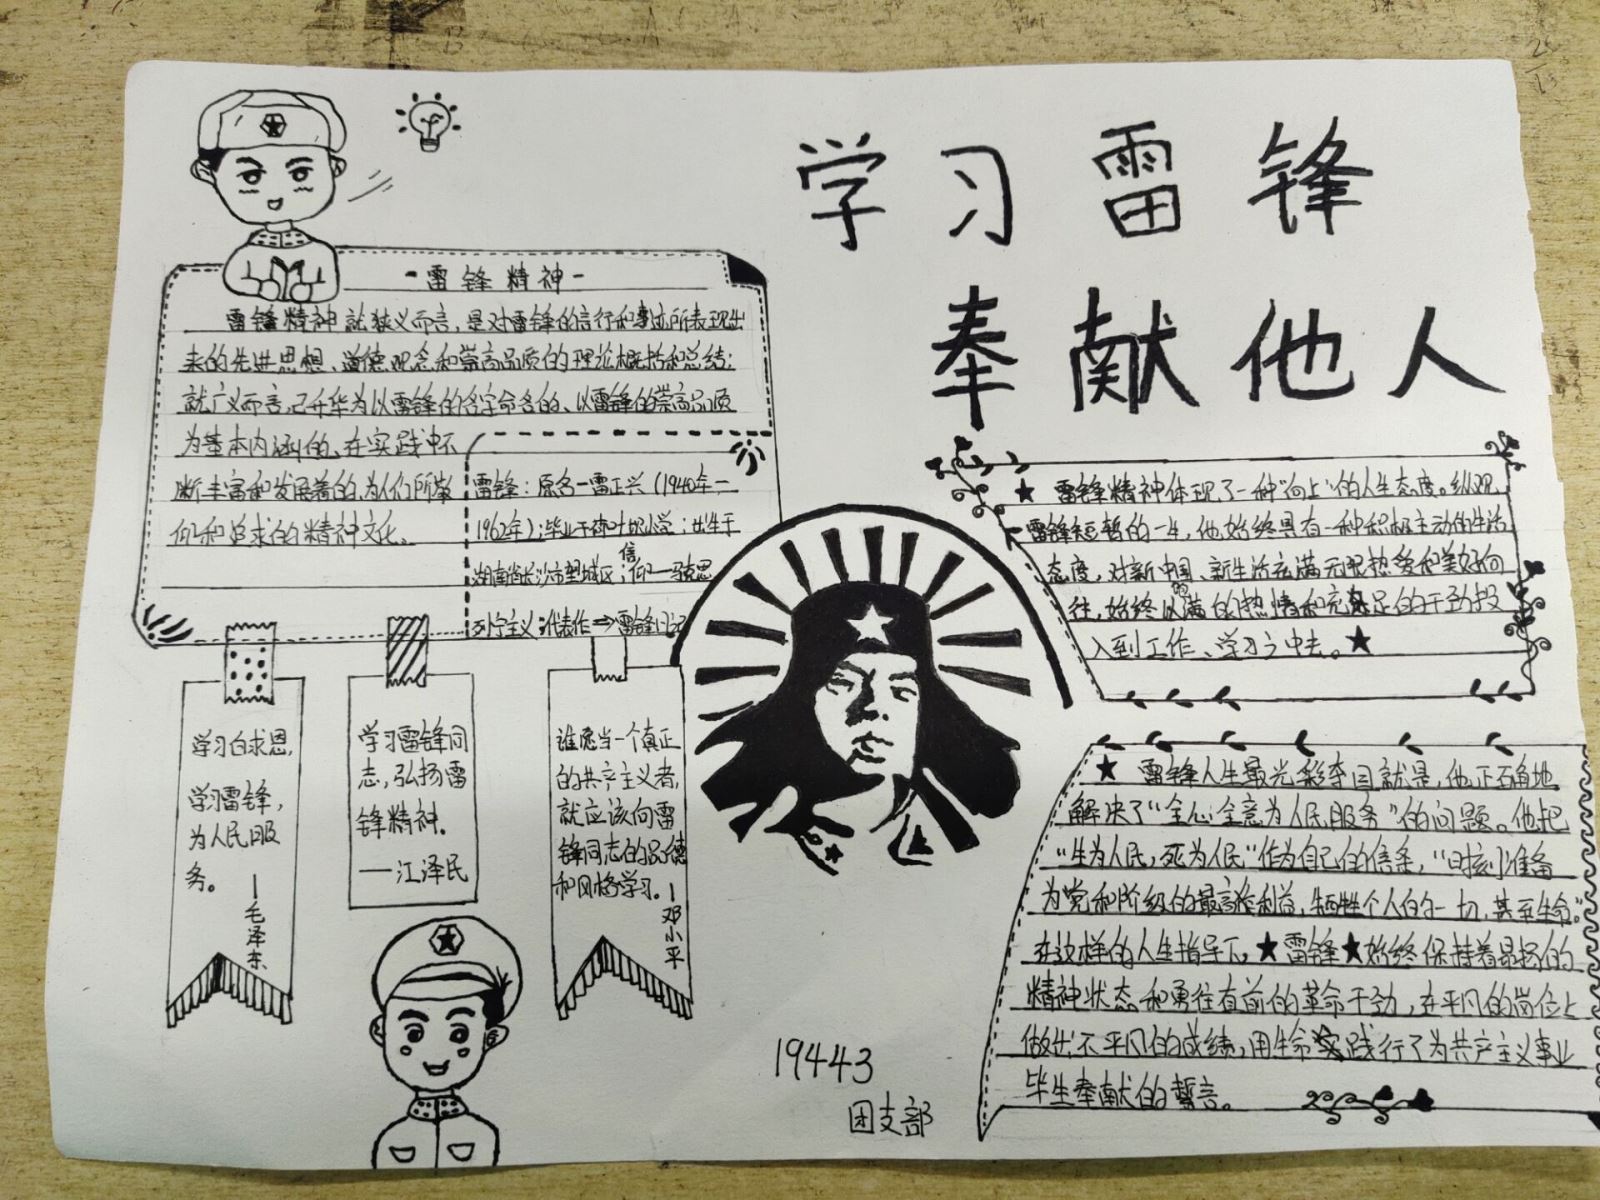 学习雷锋
奉献他人
-雷锋精神-
雷锋精神就狭义而言，是对雷锋的言行和事迹所表现出
来的先进思想、道德观念和崇高品质的理论概括和总结；
就广义而言，已升华为以雷锋的名字命名的、以雷锋的崇高品质
为基本内涵的、在实践中不
断丰富和发展着的，为人们所敬
仰和追求的精神文化。
雷锋：原名一雷正兴（1940年一
1962年）；毕业于荷叶坝小学；出生于
湖南省长沙市望城区；信仰一马克思
列宁主义；代表作⇒雷锋日记
★ 雷锋精神体现了一种“向上”的人生态度。纵观
雷锋短暂的一生，他始终具有一种积极主动的生活
态度，对新中国、新生活充满无限热爱和美好向
往，始终以满的热情和充足的干劲投
入到工作、学习之中去。★
★ 雷锋人生最光彩夺目就是，他正确地
解决了“全心全意为人民服务”的问题。他把
“生为人民，死为人民”作为自己的信条，“时刻准备
为党和阶级的最高利益，牺牲个人的一切，甚至生命。”
在这样的人生指导下，★雷锋★始终保持着昂扬的
精神状态和勇往直前的革命干劲，在平凡的岗位上
做出不平凡的成绩，用生命实践行了为共产主义事业
毕生奉献的誓言。
学习白求恩，
学习雷锋，
为人民服
务。
—毛泽东
学习雷锋同
志，弘扬雷
锋精神。
——江泽民
谁愿当一个真正
的共产主义者，
就应该向雷
锋同志的品德
和风格学习。
—邓小平
19443
团支部